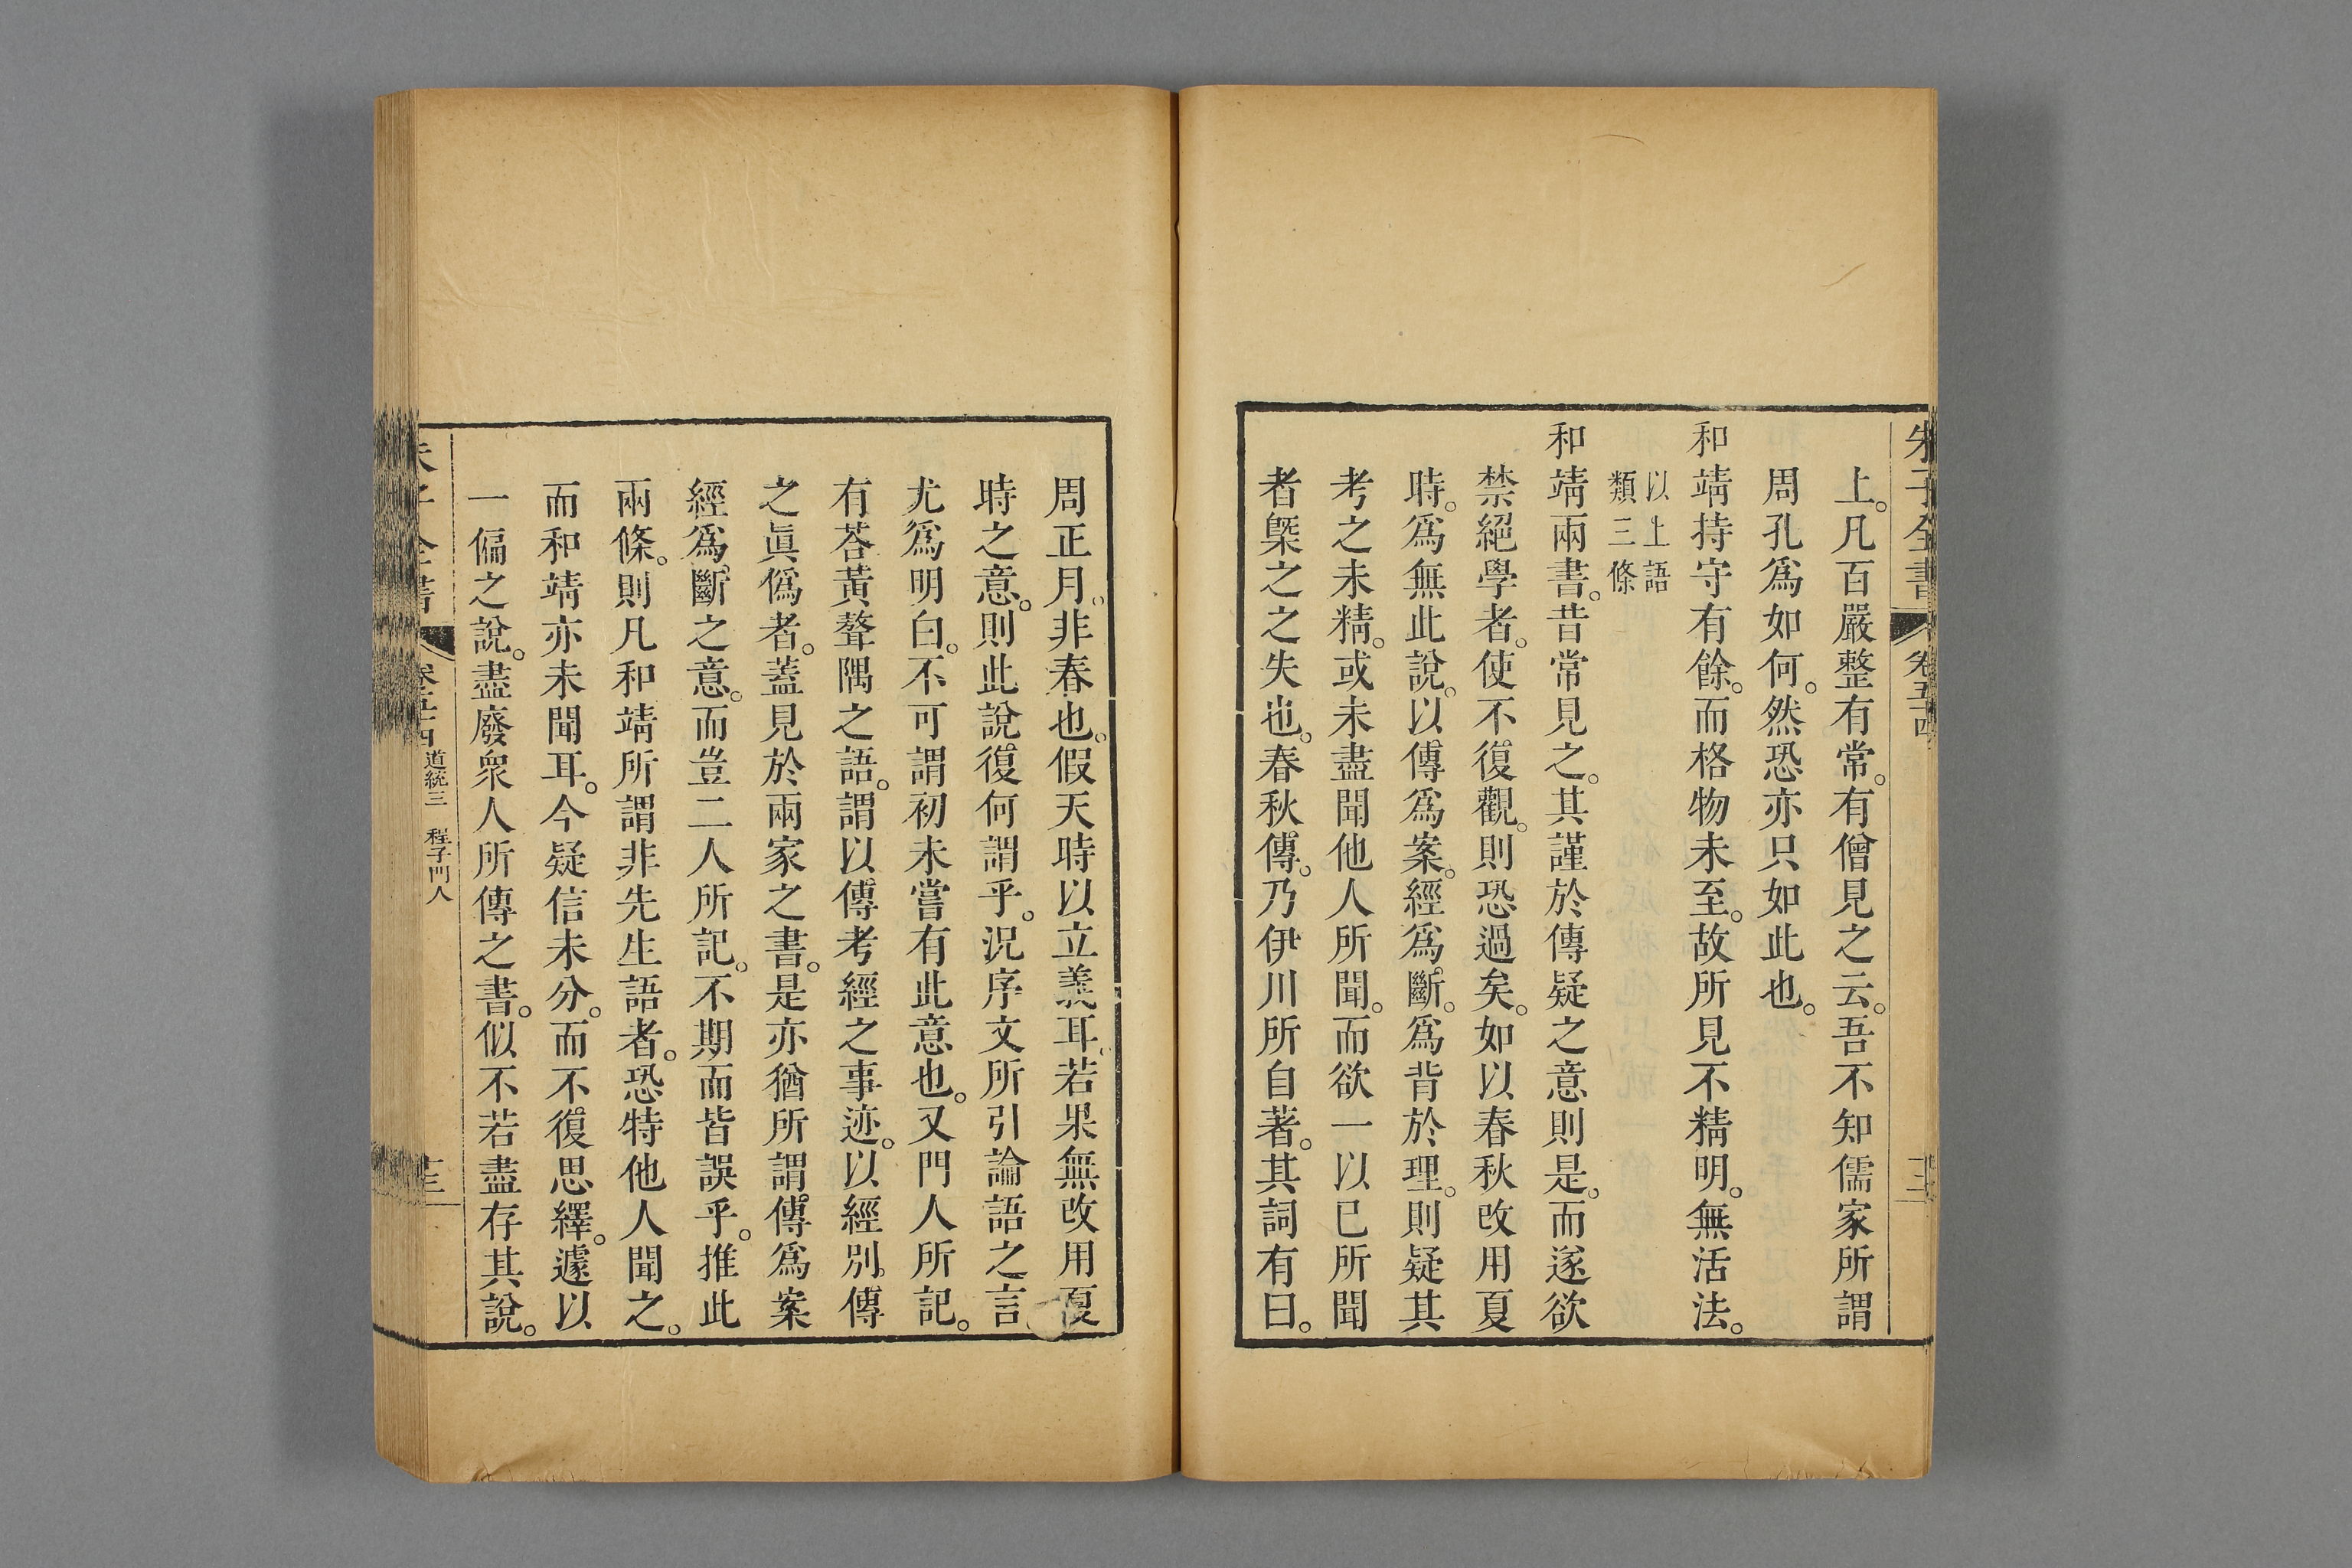 朱子全書 卷五十四
上。凡百嚴整有常。有僧見之云。吾不知儒家所謂
周孔爲如何。然恐亦只如此也。
和靖持守有餘。而格物未至。故所見不精明。無活法。
以上語
類三條
和靖兩書。昔常見之。其謹於傳疑之意則是。而遂欲
禁絕學者。使不復觀。則恐過矣。如以春秋改用夏
時。爲無此說。以傳爲案。經爲斷。爲背於理。則疑其
考之未精。或未盡聞他人所聞。而欲一以已所聞
者槩之之失也。春秋傳。乃伊川所自著。其詞有曰。
周正月。非春也。假天時以立義耳。若果無改用夏
時之意。則此說復何謂乎。況序文所引論語之言。
尤爲明白。不可謂初未嘗有此意也。又門人所記。
有荅黃聱隅之語。謂以傳考經之事迹。以經別傳
之眞僞者。蓋見於兩家之書。是亦猶所謂傳爲案
經爲斷之意。而豈二人所記。不期而皆誤乎。推此
兩條。則凡和靖所謂非先生語者。恐特他人聞之。
而和靖亦未聞耳。今疑信未分。而不復思繹。遽以
一偏之說。盡廢衆人所傳之書。似不若盡存其說。
朱子全書 卷五十四 道統三 程子門人